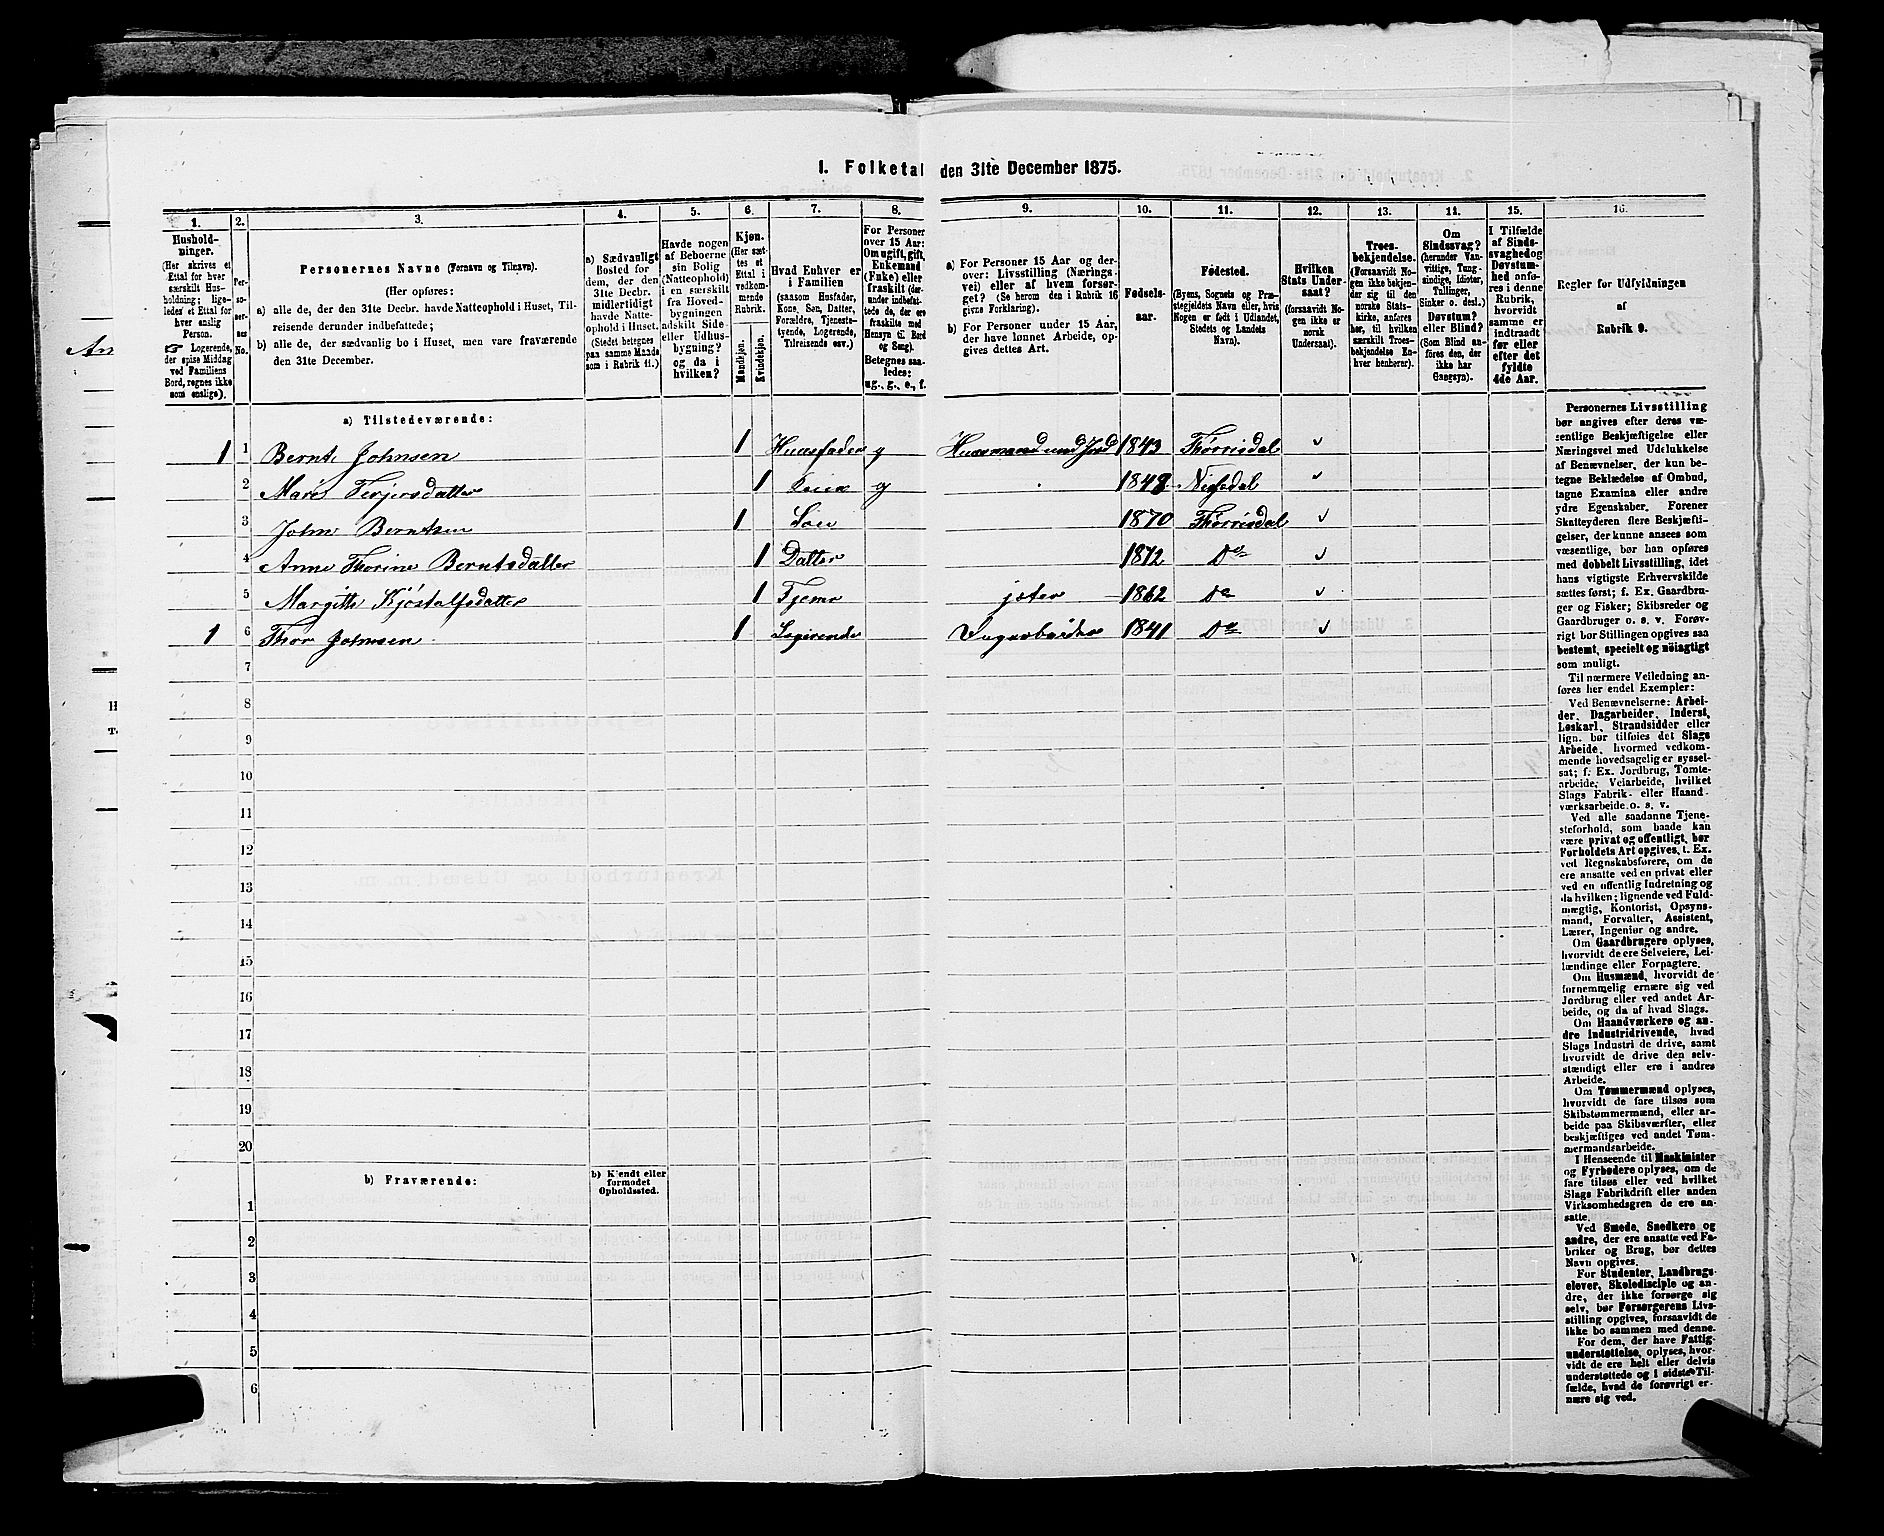 1. Folketal den 31te December 1875.
1. 2. 3. 4. 5. 6. 7. 8. 9. 10. 11. 12. 13. 14. 15. 16.
Hushold-
ninger.
(Her skrives et
Ettal for hver
særskilt Hus-
holdning; lige-
ledes et Ettal for
hver enslig
Person.
☞ Logerende,
der spise Middag
ved Familiens
Bord, regnes ikke
som enslige).
Per-
so-
ner-
nes
No.
Personernes Navne (Fornavn og Tilnavn).
(Her opføres:
a) alle de, der den 31te Decbr. havde Natteophold i Huset, Til-
reisende derunder indbefattede;
b) alle de, der sædvanlig bo i Huset, men vare fraværende
den 31te December.
a) Sædvanligt
Bosted for
dem, der den
31te Decbr.
midlertidigt
havde Natte-
ophold i Huset.
(Stedet betegnes
paa samme Maade
som i Rubrik 11.)
Havde nogen
af Beboerne
sin Bolig
(Natteophold)
i en særskilt
fra Hoved-
bygningen
adskilt Side-
eller Udhus-
bygning?
og da i
hvilken?
Kjøn.
(Her sæt-
tes et
Ettal i
vedkom-
mende
Rubrik.
Mandkjøn.
Kvindekjøn.
Hvad Enhver er
i Familien
(saasom Husfader,
Kone, Søn, Datter,
Forældre, Tjeneste-
tyende, Logerende,
Tilreisende osv.)
For Personer
over 15 Aar:
Om ugift, gift,
Enkemand
(Enke) eller
fraskilt (der-
under indbefat-
tede de, der ere
fraskilte med
Hensyn til Bord
og Seng).
Betegnes saa-
ledes:
ug., g., e., f.
a) For Personer 15 Aar og der-
over: Livsstilling (Nærings-
vei) eller af hvem forsør-
get? (Se herom den i Rubrik 16
givne Forklaring).
b) For Personer under 15 Aar,
der have lønnet Arbeide, op-
gives dettes Art.
Fødsels-
aar.
Fødested.
(Byens, Sognets og Præ-
stegjeldets Navn eller, hvis
Nogen er født i Udlandet,
Stedets og Landets
Navn).
Hvilken
Stats Under-
saat?
(forsaavidt No-
gen ikke er
norsk
Undersaat).
Troes-
bekjendelse.
(Forsaavidt No-
gen ikke bekjen-
der sig til den
norske Stats-
kirke, anføres
her, til hvilken
særskilt Troes-
bekjendelse En-
hver henhører).
Om
Sindssvag?
(herunder Van-
vittige, Tung-
sindige, Idioter,
Tullinger,
Sinker o. desl.)
Døvstum?
eller Blind?
(Som Blind an-
føres den, der
ikke har
Gangsyn).
I Tilfælde
af Sinds-
svaghed og
Døvstum-
hed onfø-
res i denne
Rubrik,
hvorvidt
samme er
indtraadt
før eller
efter det
fyldte
4de Aar.
Regler for Udfyldningen
af
Rubrik 9.
a) Tilstedeværende:
1 1 Bernt Johnsen 1 Huusfader g Huusmand med Jord 1843 Thørrisdal
2 Maris Terjersdatter 1 g 1848 Nissedal
3 John Berntsen 1 Søn 1870 Thørrisdal
4 Anne Thorine Berntsdatter 1 Datter 1872 Do
5 Margitte Kjøstalfsdatter 1 1862 Do
1 6 Thor Johnsen 1 Logirende 1841 Do
7
8
9
10
11
12
13
14
15
16
17
18
19
20
b) Fraværende:
b) Kjendt eller
formodet
Opholdssted.
1
2
3
4
5
6
Personernes Livsstilling
bør angives efter deres væ-
sentlige Beskjæftigelse eller
Næringsvei med Udelukkelse
af Benævnelser, der kun be-
tegne Beklædelse af Ombud,
tagne Examina eller andre
ydre Egenskaber. Forener
Skatteyderen flere Beskjæfti-
gelser, der kunne ansees som
væsentlige, bør han opføres
med dobbelt Livsstilling, idet
hans vigtigste Erhvervskilde
sættes først; f. Ex. Gaardbru-
ger og Fisker; Skibsreder og
Gaardbruger o. s. v. Forøv-
rigt bør Stillingen opgives saa
bestemt, specielt og nöiagtigt
som muligt.
Til nærmere Veiledning an-
føres her endel Exempler:
Ved Benævnelserne: Arbei-
der, Dagarbeider, Inderst,
Løskarl, Strandsidder eller
lign. bør tilføies det Slags
Arbeide, hvormed vedkom-
mende hovedsagelig er syssel-
sat; f. Ex. Jordbrug, Tomte-
arbeide, Veiarbeide, hvilket
Slags Fabrik- eller Haand-
værksarbeide o. s. v.
Ved alle saadanne Tjene-
steforhold, som baade kan
være privat og offentligt, bør
Forholdets Art opgives, t. Ex.
ved Regnskabsførere, om de
ere ansatte ved en privat eller
ved en offentlig Indretning og
da hvilken; lignende ved Fuld-
mægtig, Kontorist, Opsyns-
mand, Forvalter, Assistent,
Lærer, Ingeniør og andre.
Om Gaardbrugere oplyses,
hvorvidt de ere Selveiere, Lei-
lændinge eller Forpagtere.
Om Husmænd, hvorvidt de
fornemmelig ernære sig ved
Jordbrug eller ved andet Ar-
beide, og da af hvad Slags.
Om Haandværkere og an-
dre Industridrivende, hvad
Slags Industri de drive, samt
hvorvidt de drive den selv-
stændigt eller ere i andres
Arbeide.
Om Tømmermænd oplyses,
hvorvidt de fare tilsøs som
Skibstømmermænd, eller ar-
beide paa Skibsværfter, eller
beskjæftiges ved andet Tøm-
mermandsarbeide.
I Henseende til Maskinister
og Fyrbødere oplyses, om de
fare tilsøs eller ved hvilket
Slags Fabrikdrift eller anden
Virksomhedsgren de ere an-
satte.
Ved Smede, Snedkere og
andre, der ere ansatte ved Fa-
briker og Brug, bør dettes
Navn opgives.
For Studenter, Landbrugs-
elever, Skoledisciple og an-
dre, der ikke forsørge sig
selv, bør Forsørgerens Livs-
stilling opgives, forsaavidt de
ikke bo sammen med denne.
For dem, der have Fattig-
understøttelse, oplyses, hvor-
vidt de ere helt eller delvis
understøttede og i sidste Til-
fælde, hvad de forøvrigt er-
nære sig ved.